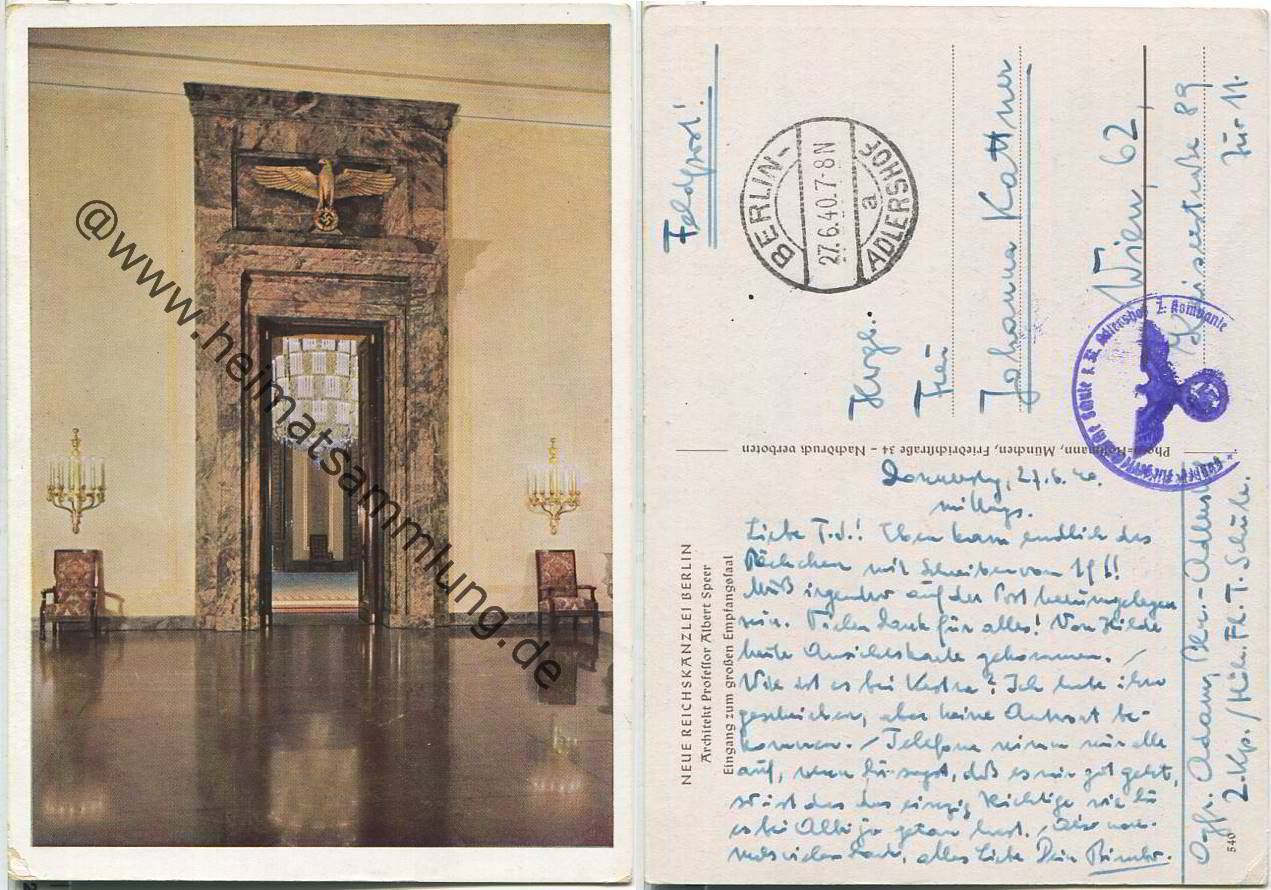 @www.heimatsammlung.de
Feldpost!
BERLIN-
27.6.40.7-8N
a
ADLERSHOF
Frei
Johanna Kattner
Wien, 62,
Kaiserstraße 89
Tür 11.
Adlershof 2. Kompanie
Photo-Hoffmann, München, Friedrichstraße 34 – Nachdruck verboten
NEUE REICHSKANZLEI BERLIN
Architekt Professor Albert Speer
Eingang zum großen Empfangssaal
Donnerstag, 27.6.40.
mittags.
Liebe T.d.! Eben kam endlich das
Päckchen mit Schreiben vom 19.!!
Muß irgendwo auf der Post herumgelegen
sein. Vielen Dank für alles! Von Hilde
heute Ansichtskarte gekommen. /
Wie ist es bei ? Ich habe ihm
geschrieben, aber keine Antwort be-
kommen. / Telefone nimm nur alle
auf, wenn Du sagst, daß es mir gut geht,
so ist das das einzig Richtige wie Du
es bei ja getan hast. / Also noch-
mals vielen Dank, alles Liebe Dein
Ogfr. Adam, Bln.-Adlershof
2. Kp. / Höh. Fl. T. Schule.
540